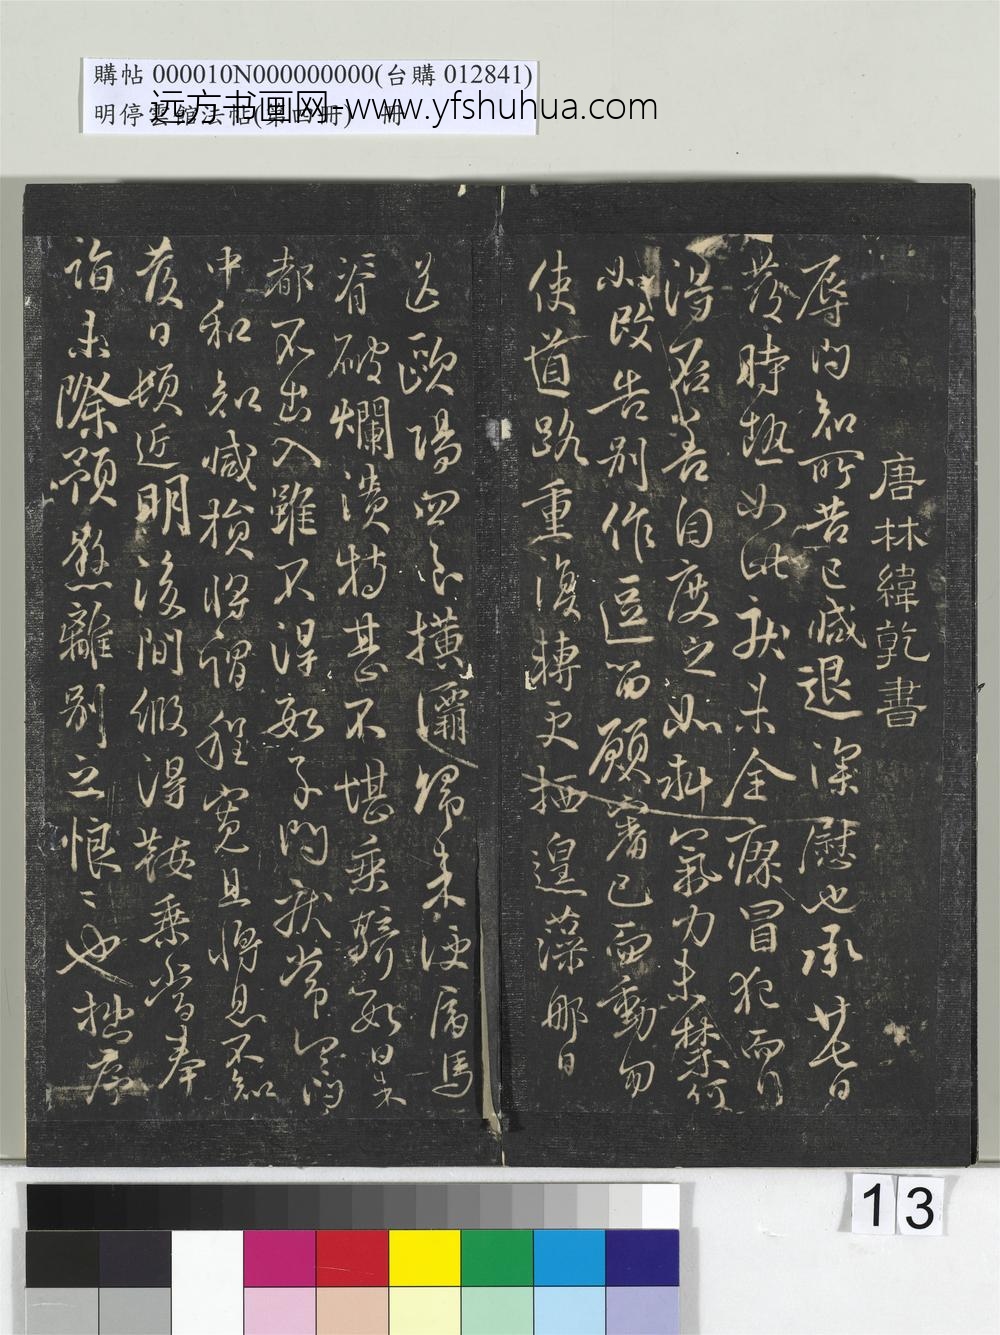 購帖 000010N000000000(台購 012841)
明停雲館法帖(第四冊) 冊
远方书画网-www.yfshuhua.com
唐林緯乾書
辱問知所苦已減退深慰也承廿七日
發時熱如此疾未全療冒犯而行
得否善自度之如斟氣力未禁何
如改告別作逗留顧審已而動勿
使道路重復轉更栖遑藻那日
送歐陽四長橫灞歸來便屬馬
脊破爛潰特甚不堪乘騎數日來
都不出入雖不得數子問狀常
中和知減損將謂程寬且將息不知
發日頓近明後間緻得鞍乘當奉
詣未際預愁離別之恨〻也拙序
13